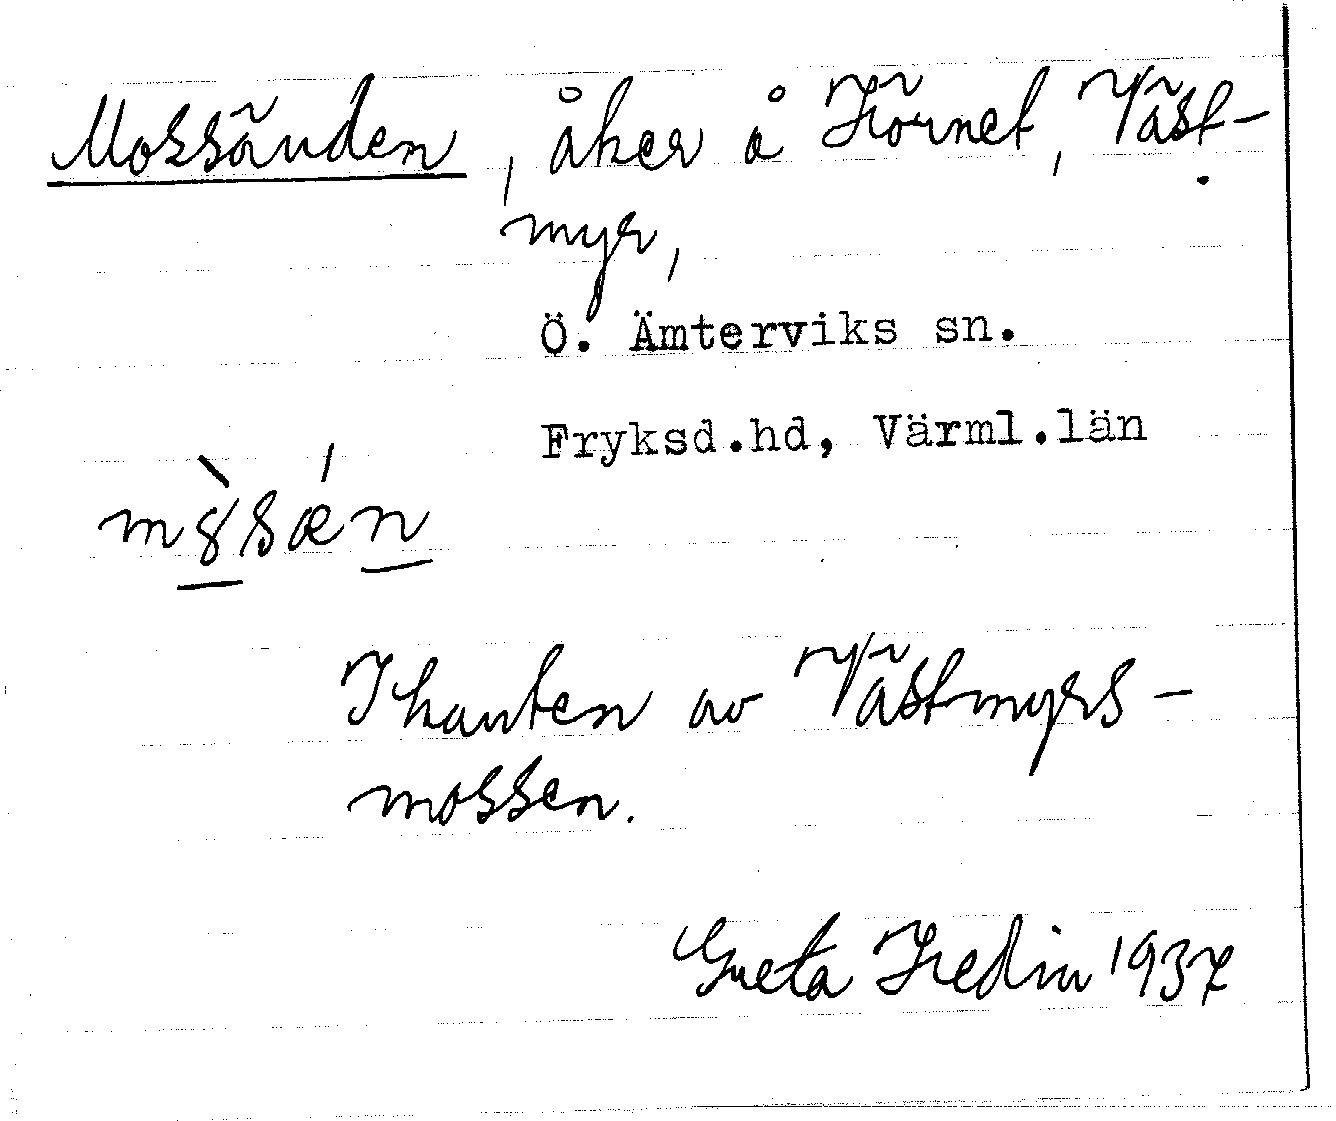 Mossänden, åker å Hörnet, Väst-
myr,
Ö. Ämterviks sn.
Fryksd.hd, Värml.län
Ikanten av Västmyrs-
mossen.
Greta Hedin 1937